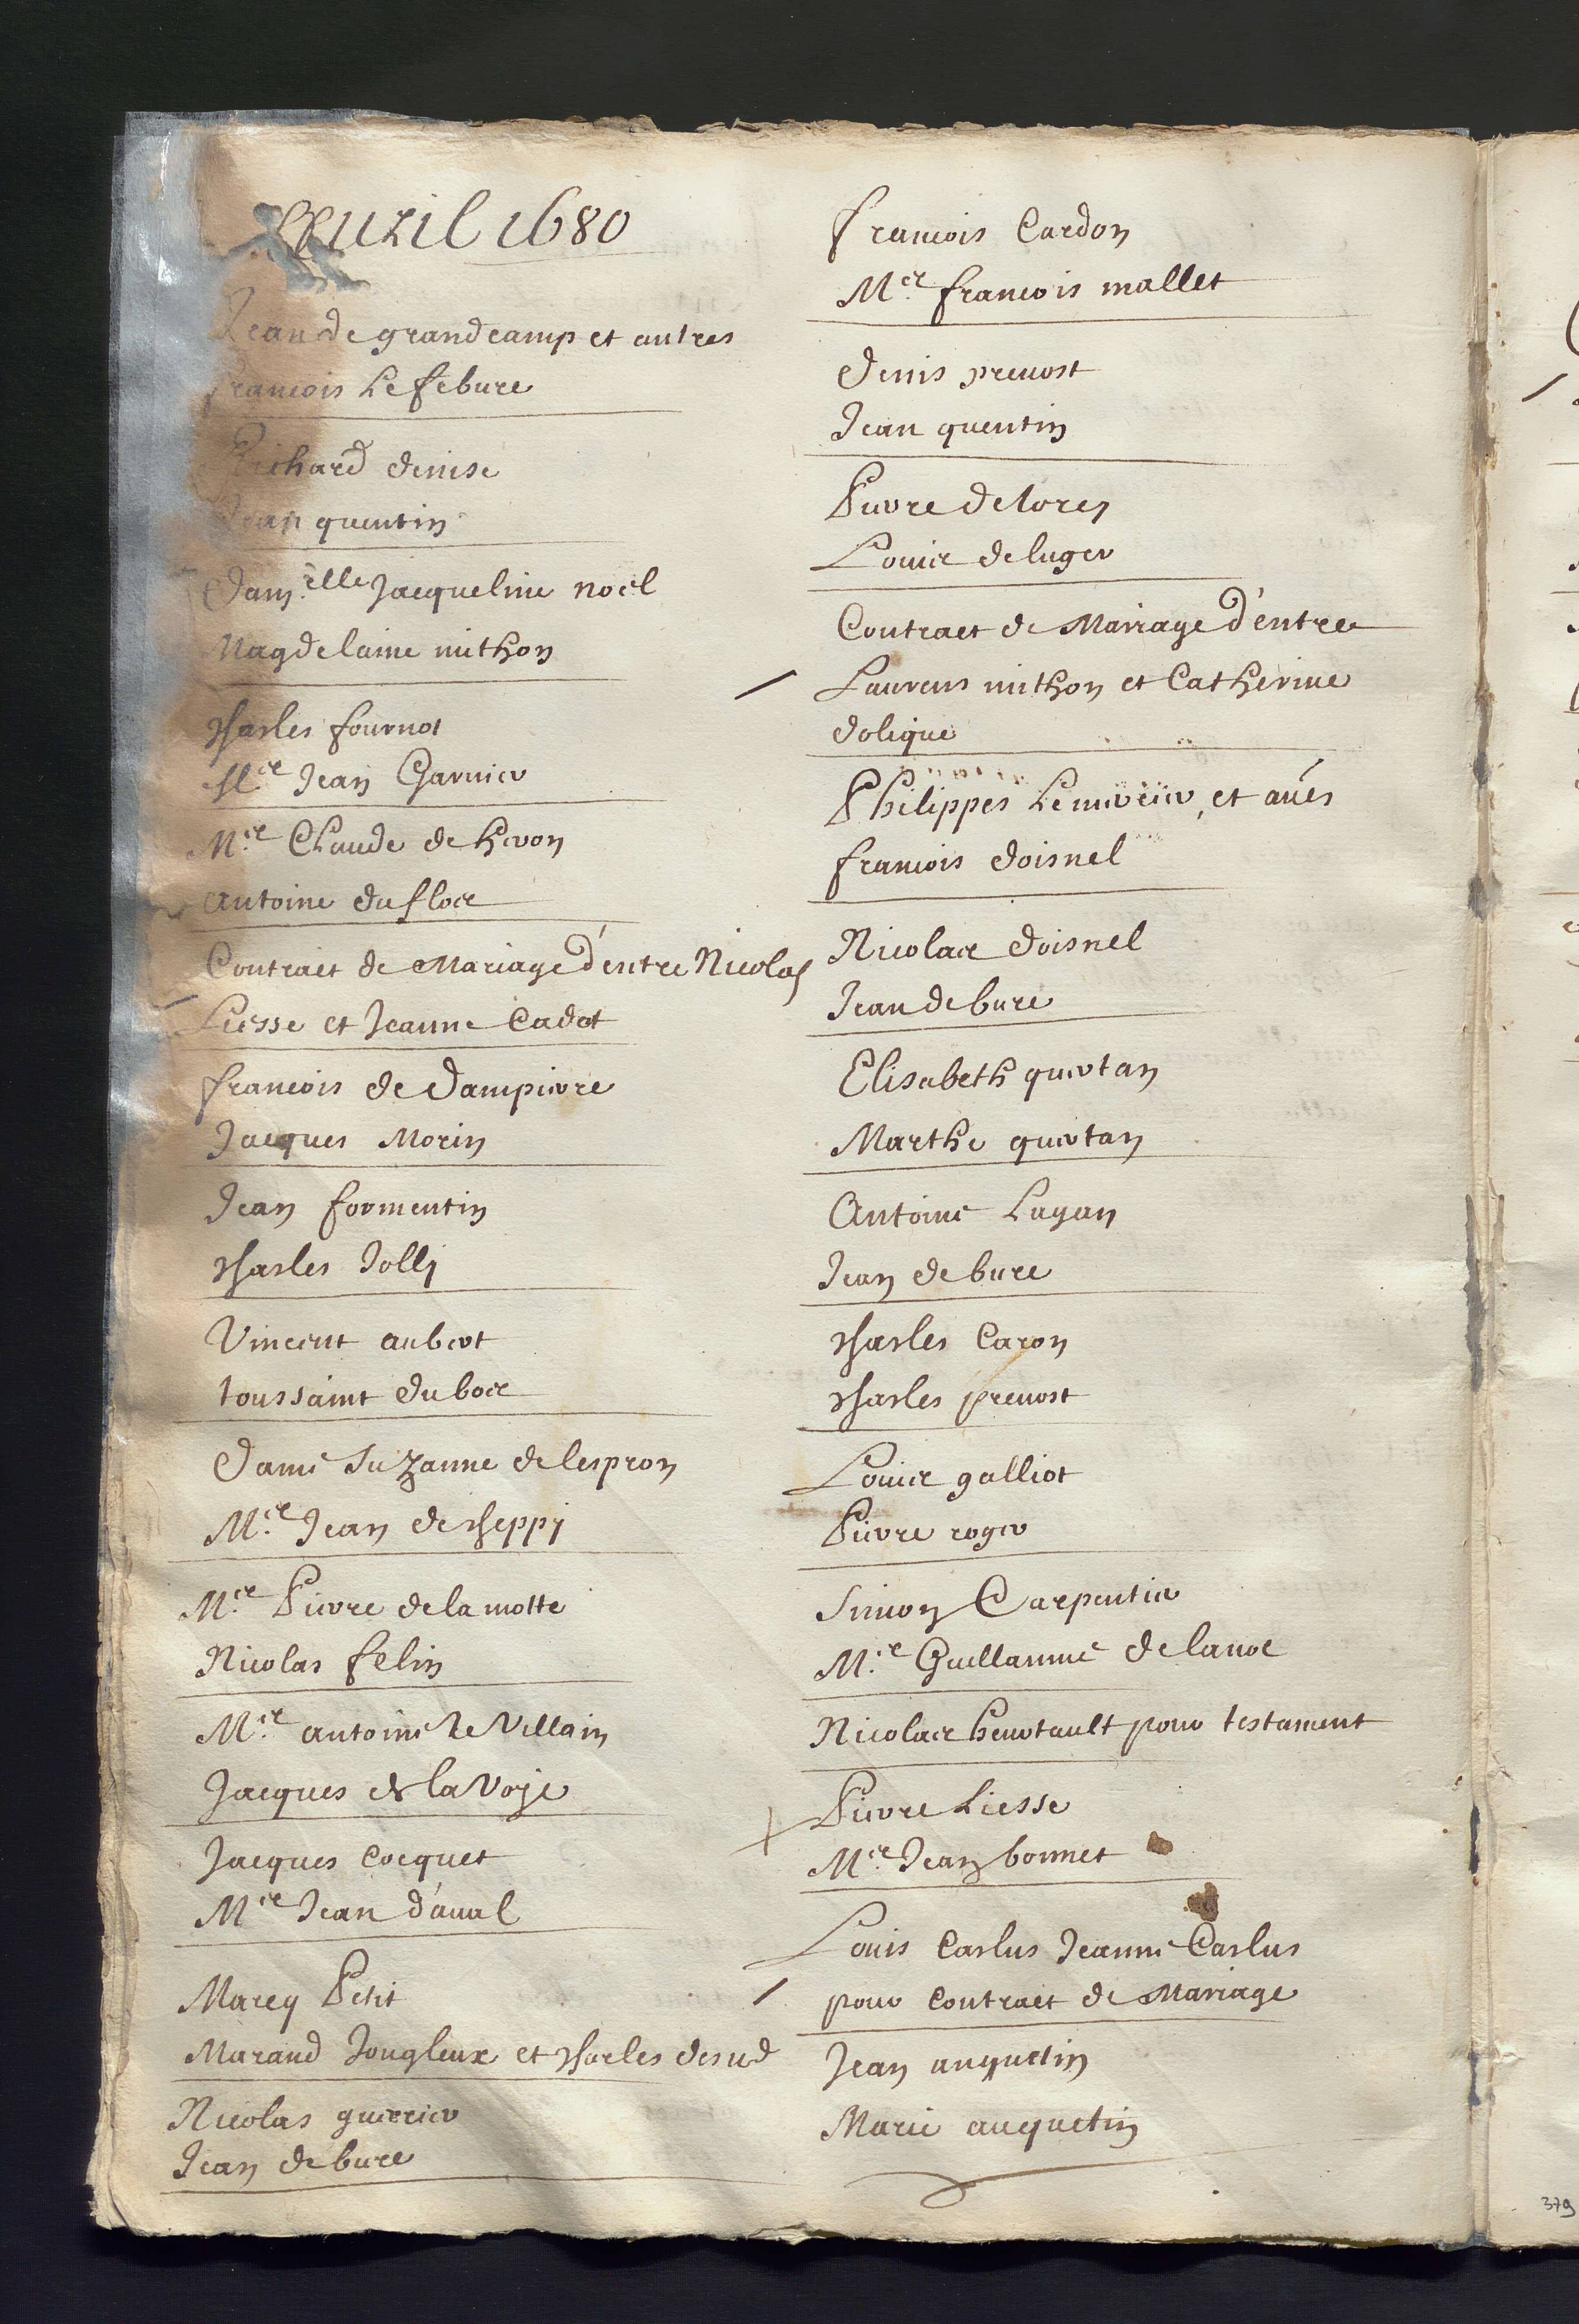 Auril 1680
Jean de grandcamp et autres
francois Lefebure
Richard denise
Jean quentin
Dam.elle Jacqueline noël
Magdelaine mithon
Charles fournot
Me. Jean Garnier
Me. Claude de heron
antoine duflos
Contract de Mariage d'entre Nicolas
Liesse et Jeanne Cadot
francois de Dampierre
Jacques Morin
Jean formentin
Charles Jolly
Vincent aubert
toussaint dubois
Dame Suzanne de lespron
Me. Jean de cheppy
Me. Pierre de la motte
Nicolas felin
Me. antoine le Villain
Jacques de la Voye
Jacques Cocquet
Me. Jean d'aual
Marcq Petit
Marand Jongleux et Charles
Nicolas guerrier
Jean de bure
francois Cardon
Me. francois mallet
Denis preuost
Jean quentin
Pierre delores
Louis deluger
Contract de Mariage d'entre
Laurens mithon et Catherine
dolique
Philippes et aues
francois doisnel
Nicolas doisnel
Jean de bure
Elisabeth quertan
Marthe quertan
Antoine Lagan
Jean de bure
Charles Caron
Charles preuost
Louis galliot
Pierre roger
Simon Carpentier
Me. Guillaume de lanoe
Nicolas heurtault pour testament
Pierre Liesse
Me. Jean bonnet
Louis Caslus Jeanne Caslus
pour Contract de Mariage
Jean anquetin
Marie anquetin
379